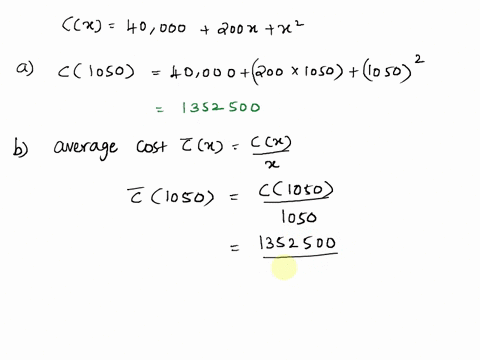 C(x) = 40,000 + 200x + x²
a) C(1050) = 40,000+(200×1050)+(1050)²
= 1352500
b) average cost C̅(x) = C(x)/x
C̅(1050) = C(1050)/1050
= 1352500